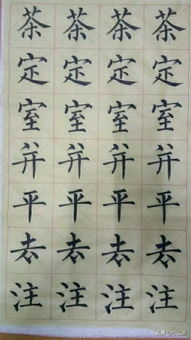 茶茶茶茶
定定定定
室室室室
并并并并
平平平平
去去去去
注注注注